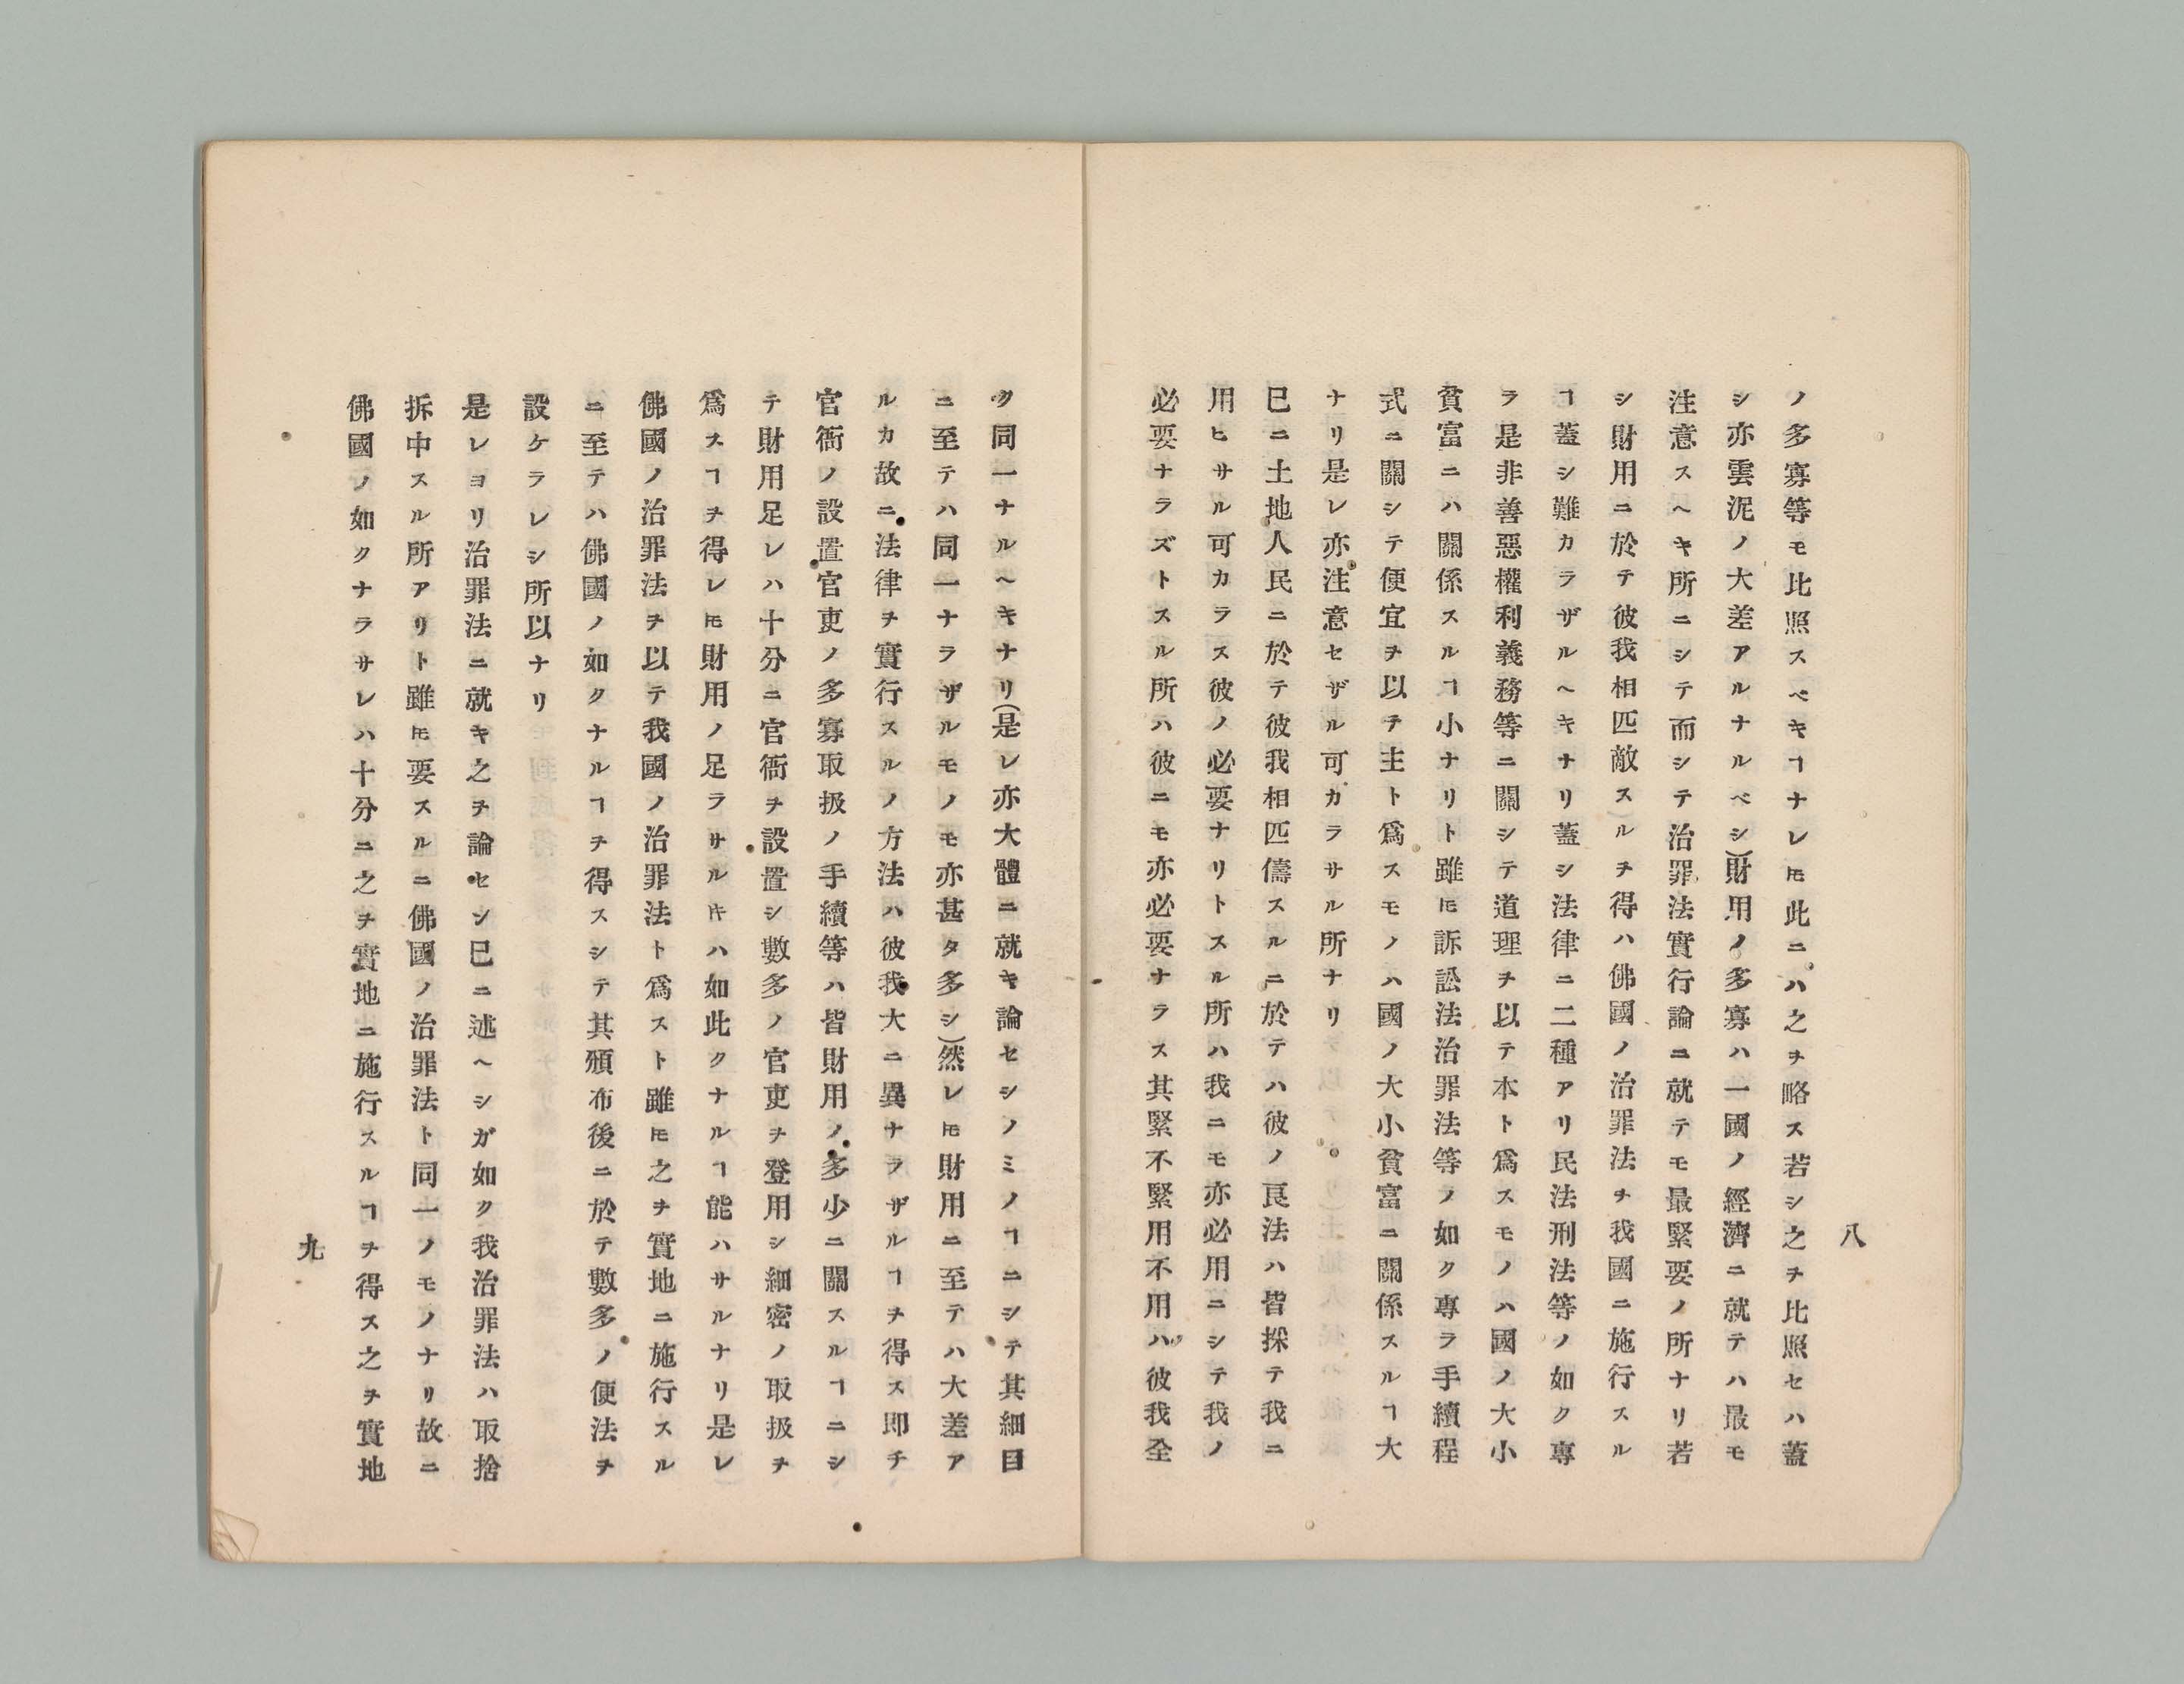 八
ノ多寡等モ比照スベキヿナレ𪜈此ニハ之ヲ略ス若シ之ヲ比照セハ蓋
シ亦雲泥ノ大差アルナルベシ)財用ノ多寡ハ一國ノ經濟ニ就テハ最モ
注意スヘキ所ニシテ而シテ治罪法實行論ニ就テモ最緊要ノ所ナリ若
シ財用ニ於テ彼我相匹敵スルヲ得ハ佛國ノ治罪法ヲ我國ニ施行スル
ヿ蓋シ難カラザルヘキナリ蓋シ法律ニ二種アリ民法刑法等ノ如ク專
ラ是非善惡權利義務等ニ關シテ道理ヲ以テ本ト爲スモノハ國ノ大小
貧富ニハ關係スルヿ小ナリト雖𪜈訴訟法治罪法等ノ如ク專ラ手續程
式ニ關シテ便宜ヲ以テ主ト爲スモノハ國ノ大小貧富ニ關係スルヿ大
ナリ是レ亦注意セザル可カラサル所ナリ
已ニ土地人民ニ於テ彼我相匹儔スルニ於テハ彼ノ良法ハ皆採テ我ニ
用ヒサル可カラス彼ノ必要ナリトスル所ハ我ニモ亦必用ニシテ我ノ
必要ナラズトスル所ハ彼ニモ亦必要ナラス其緊不緊用不用ハ彼我全
ク同一ナルヘキナリ(是レ亦大體ニ就キ論セシノミノヿニシテ其細目
ニ至テハ同一ナラザルモノモ亦甚タ多シ)然レ𪜈財用ニ至テハ大差ア
ルカ故ニ法律ヲ實行スルノ方法ハ彼我大ニ異ナラザルヿヲ得ス即チ
官衙ノ設置官吏ノ多寡取扱ノ手續等ハ皆財用ノ多少ニ關スルヿニシ
テ財用足レハ十分ニ官衙ヲ設置シ數多ノ官吏ヲ登用シ細密ノ取扱ヲ
爲スヿヲ得レ𪜈財用ノ足ラサルキハ如此クナルヿ能ハサルナリ是レ
佛國ノ治罪法ヲ以テ我國ノ治罪法ト爲スト雖𪜈之ヲ實地ニ施行スル
ニ至テハ佛國ノ如クナルヿヲ得スシテ其頒布後ニ於テ數多ノ便法ヲ
設ケラレシ所以ナリ
是レヨリ治罪法ニ就キ之ヲ論セン已ニ述ヘシガ如ク我治罪法ハ取捨
拆中スル所アリト雖𪜈要スルニ佛國ノ治罪法ト同一ノモノナリ故ニ
佛國ノ如クナラサレハ十分ニ之ヲ實地ニ施行スルヿヲ得ス之ヲ實地
九